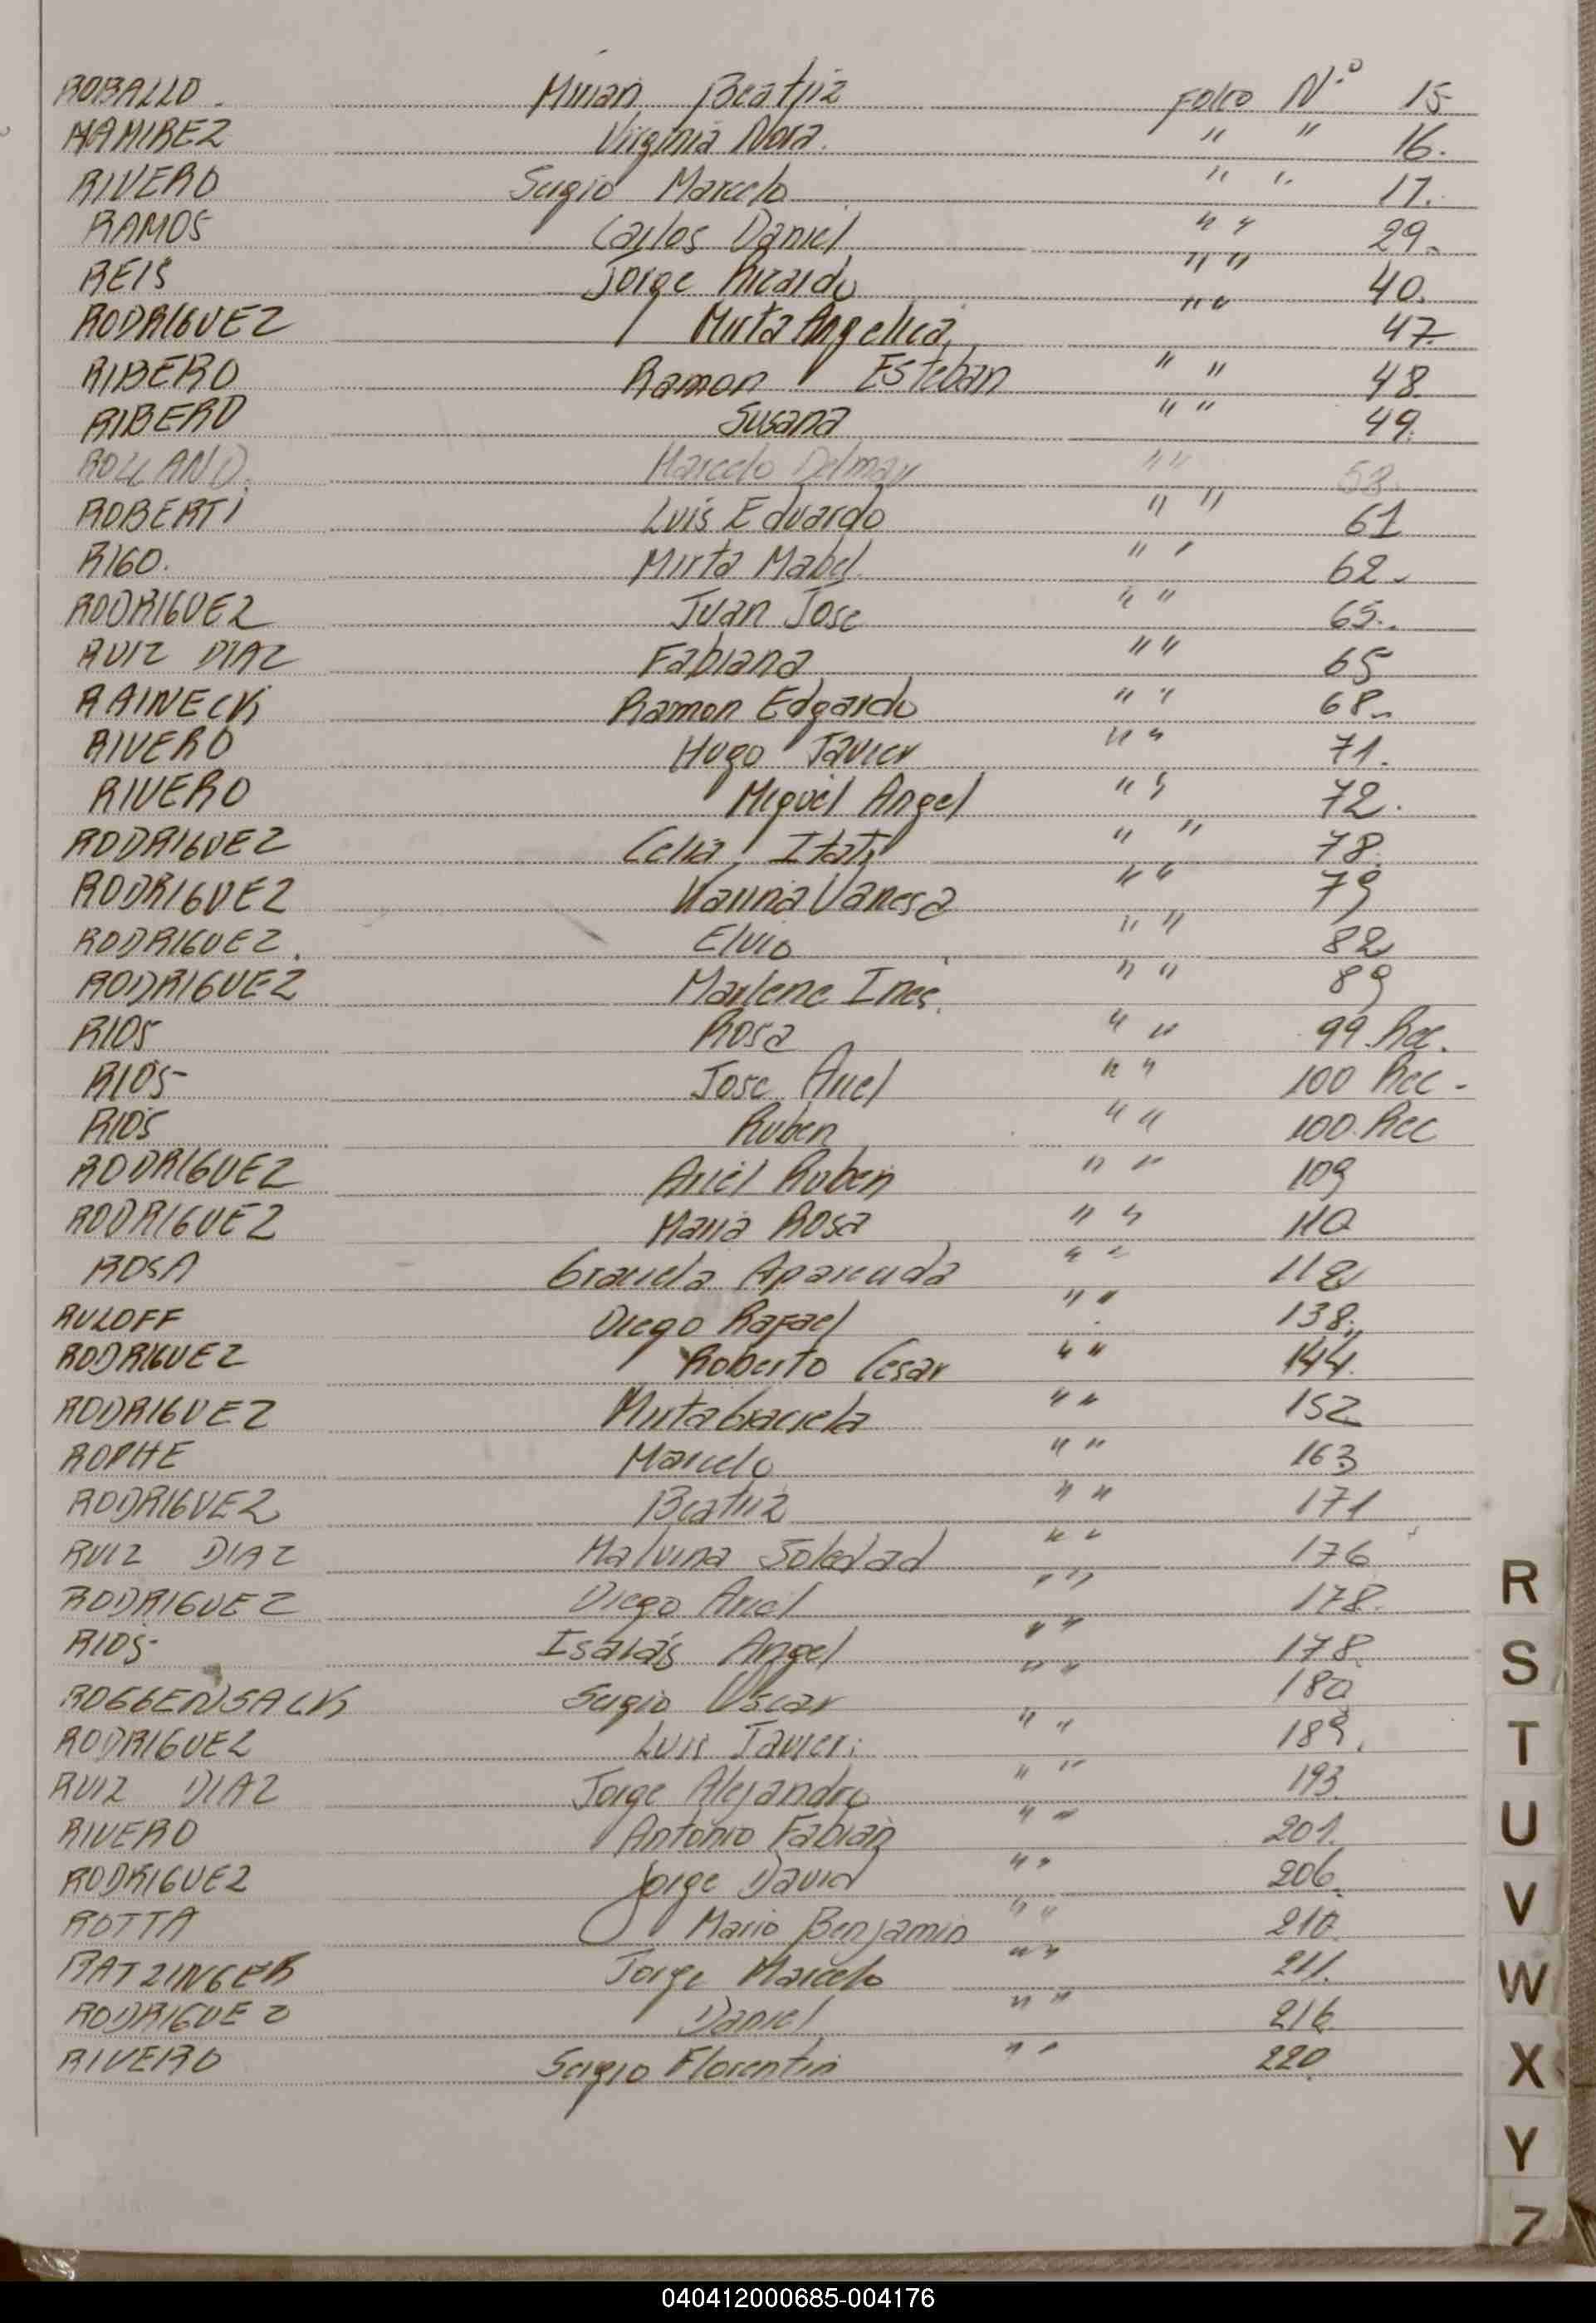 ROBALLO. Mirian Beatriz FOLIO N.º 15
RAMIREZ Virginia Nora. " " 16.
RIVERO Sergio Marcelo " " 17.
RAMOS Carlos Daniel " " 29.
REIS Jorge Ricardo " " 40.
RODRIGUEZ Mirta Angelica " " 47.
RIBERO Ramon Esteban " " 48.
RIBERO Susana " " 49.
ROLLAND. Marcelo Delmar " " 53.
ROBERTI Luis Eduardo " " 61
RIGO. Mirta Mabel " " 62.
RODRIGUEZ Juan Jose " " 65..
RUIZ DIAZ Fabiana " " 65
RAINECK Ramon Edgardo " " 68.
RIVERO Hugo Javier " " 71.
RIVERO Miguel Angel " " 72.
RODRIGUEZ Celia Itati " " 78.
RODRIGUEZ Karina Vanesa " " 79
RODRIGUEZ. Elvio " " 82
RODRIGUEZ Marlene Ines. " " 89
RIOS Rosa " " 99 Rec.
RIOS- Jose Ariel " " 100 Rec -
RIOS Ruben " " 100 Rec
RODRIGUEZ Ariel Ruben " " 109
RODRIGUEZ Maria Rosa " " 110
ROSA Graciela Aparecida " " 112
RULOFF Diego Rafael " " 138.
RODRIGUEZ Roberto Cesar " " 144.
RODRIGUEZ Mirta Graciela " " 152
ROPHE Marcelo " " 163
RODRIGUEZ Beatriz " " 171
RUIZ DIAZ Malvina Soledad " " 176
RODRIGUEZ Diego Ariel " " 178.
RIOS- Isaías Angel " " 178.
ROGGENSACK Sergio Oscar " " 180
RODRIGUEZ Luis Javier. " " 189.
RUIZ DIAZ Jorge Alejandro " " 193.
RIVERO Antonio Fabian " " 201.
RODRIGUEZ Jorge David " " 206.
ROTTA Mario Benjamin " " 210.
RATZINGER Jorge Marcelo " " 211.
RODRIGUEZ Daniel " " 216
RIVERO Sergio Florentin " " 220
R
S
T
U
V
W
X
Y
Z
040412000685-004176